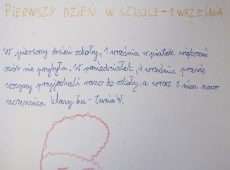 PIERWSZY DZIEŃ W SZKOLE - 1 WRZEŚNIA
W pierwszy dzień szkoły, 1 września w piątek większość
osób nie przybyła, w poniedziałek, 4 września prawie
wszyscy przyjechali rano do szkoły, a wraz z nimi nowa
uczennica klasy